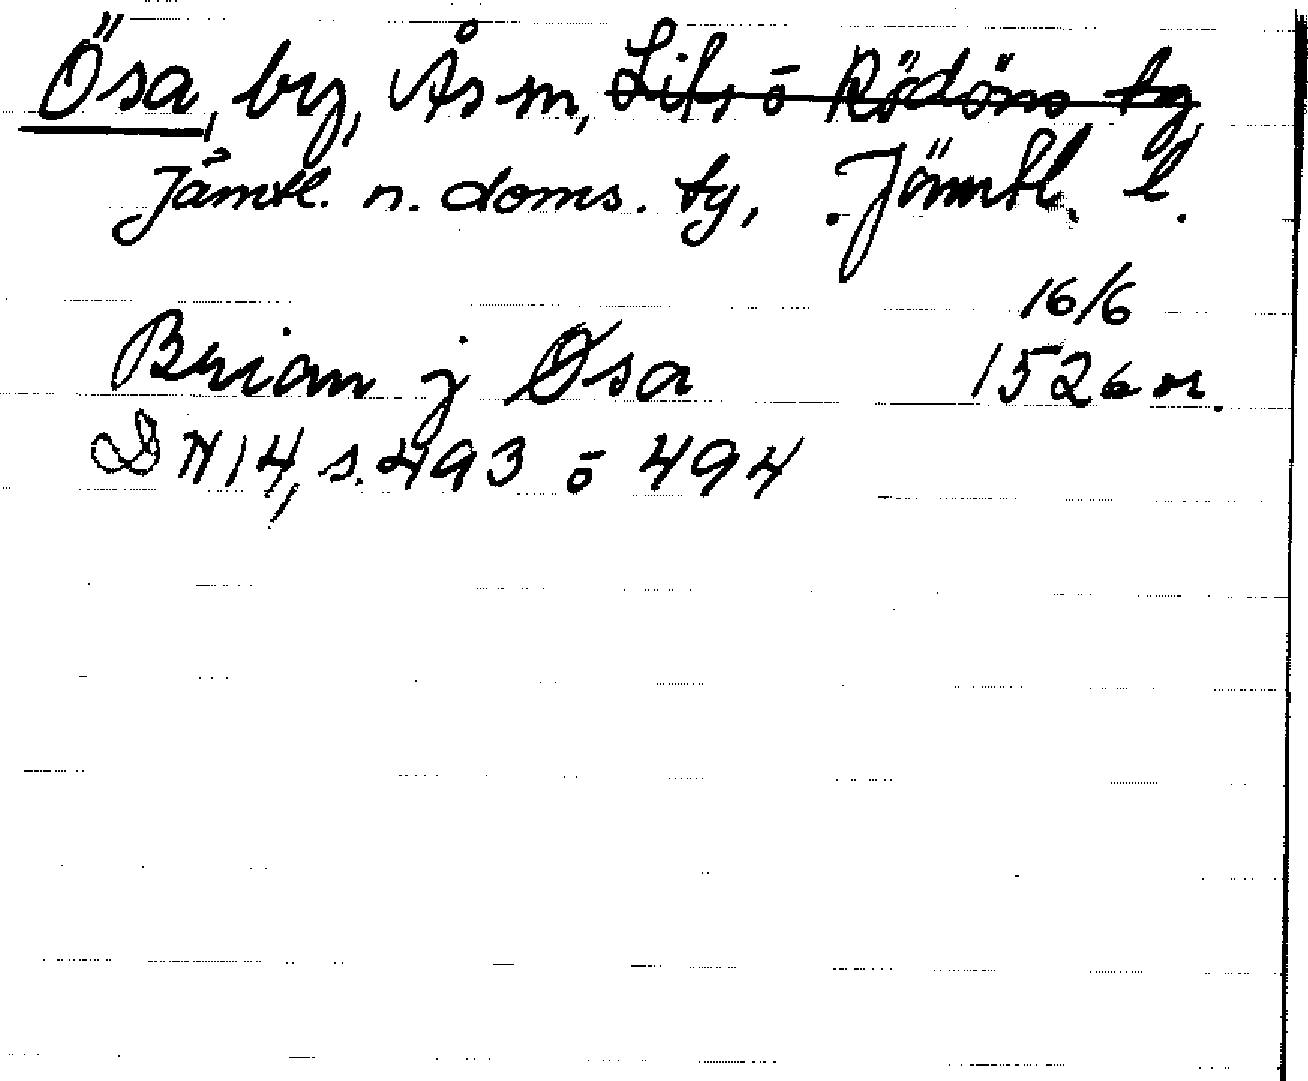 Ösa, by, Ås sn, Lits o Rödöns tg,
Jämtl. n. doms. tg, Jämtl. l.
16/6
Brian j Øsa 1526 or.
DN 14, s. 493 o 494